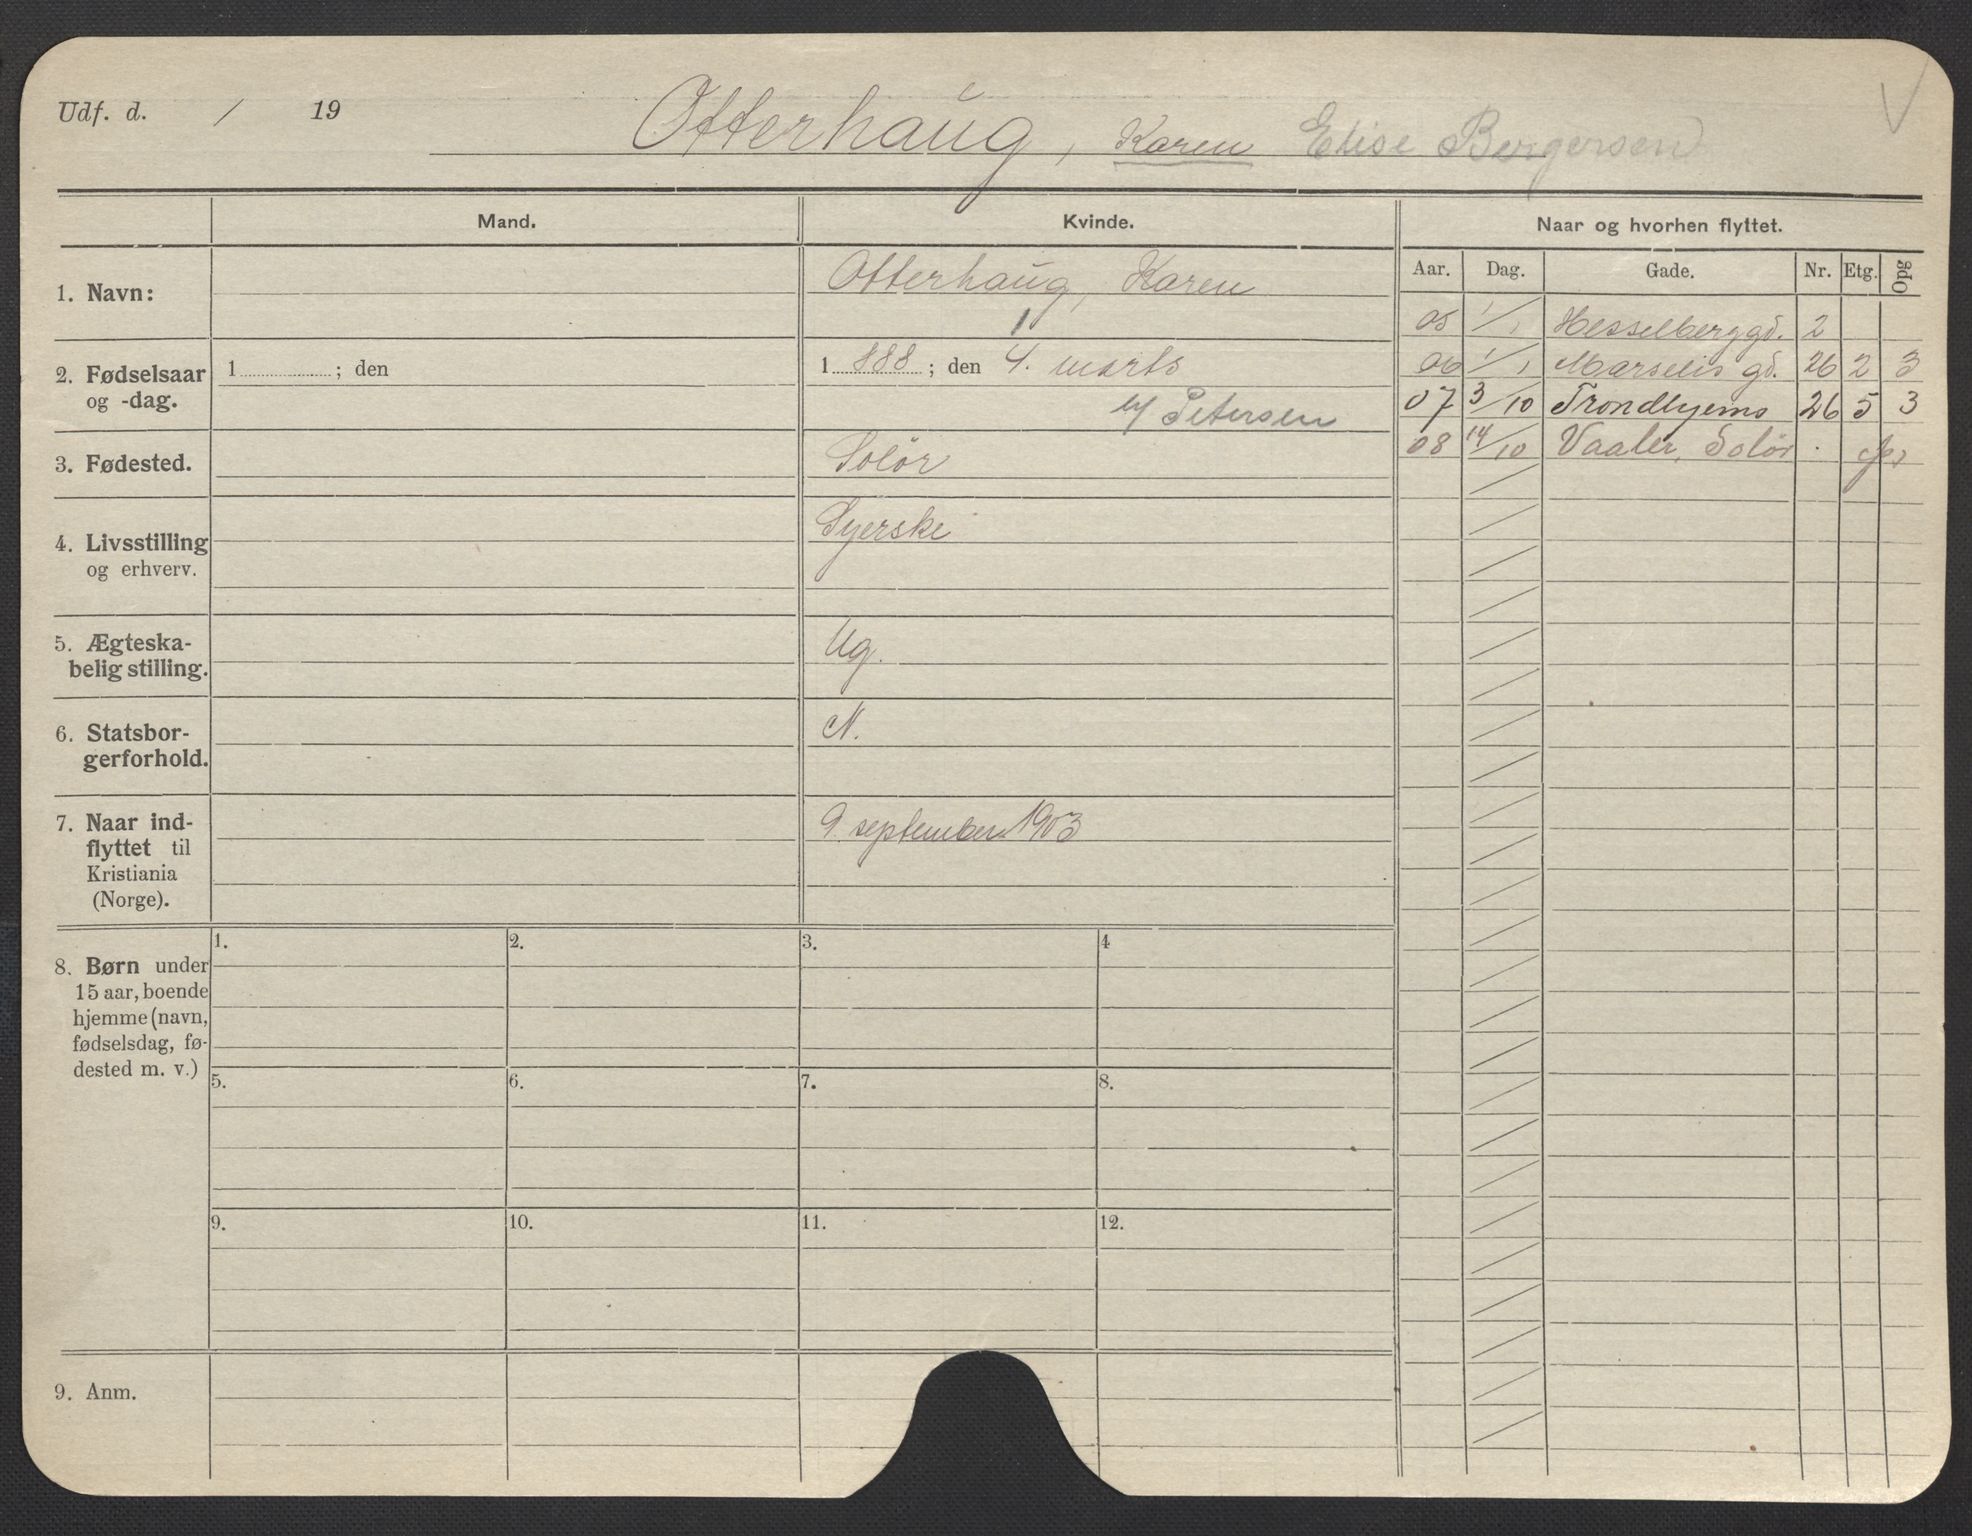 Udf. d. / 19
Otterhaug, Karen Elise Bergersen
Mand.
Kvinde.
Naar og hvorhen flyttet.
Aar. Dag. Gade. Nr. Etg. Opg
1. Navn:
Otterhaug, Karen
1
2. Fødselsaar
og -dag.
1 ; den
1 888 ; den 4. marts
Petersen
3. Fødested.
Solör
4. Livsstilling
og erhverv.
Syerske
5. Ægteska-
belig stilling.
Ug.
6. Statsbor-
gerforhold.
N.
7. Naar ind-
flyttet til
Kristiania
(Norge).
9. september 1903
05 1/1 Hesselberggd. 2
06 1/1 Marselis gd. 26 2 3
07 3/10 Trondhjems 26 5 3
08 14/10 Vaaler, Solör
8. Børn under
15 aar, boende
hjemme (navn,
fødselsdag, fø-
dested m. v.)
1. 2. 3. 4
5. 6. 7. 8.
9. 10. 11. 12.
9. Anm.